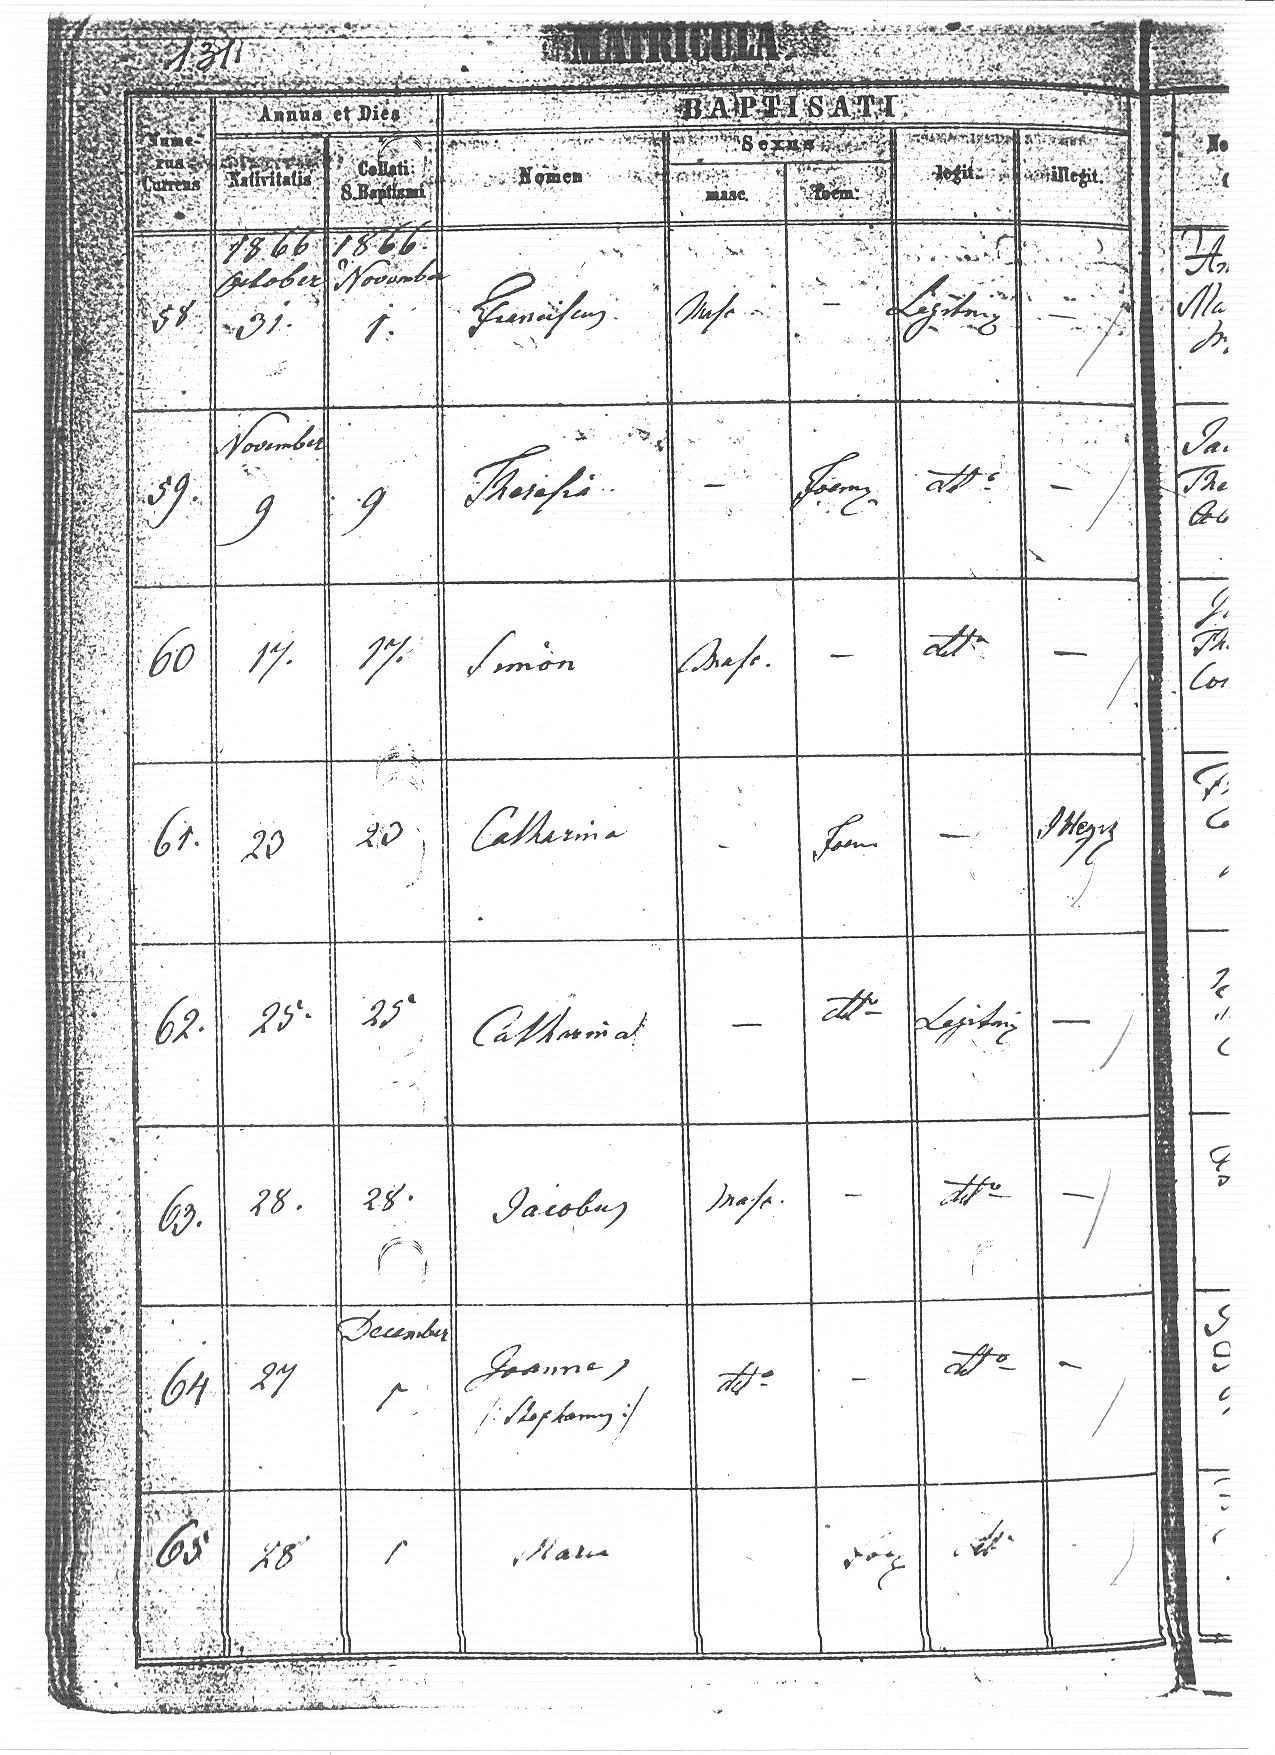 131
MATRICULA
Nume-
rus
Currens
Annus et Dies
Nativitatis
Collati
S. Baptismi
BAPTISATI
Nomen
Sexus
masc.
foem.
legit.
illegit.
1866 1866.
October November
58 31. 1. Franciscus Masc — Legitimus —
November
59. 9 9 Theresia — Foem. dtto —
60 17. 17. Simon Masc. — dtto —
61. 23 23 Catharina - Foem — Illegit
62. 25. 25 Catharina — dtto Legitim —
63. 28. 28. Jacobus Masc. — dtto —
December
64 27 1 Joannes dtto — dtto —
/: Stephanus :/
65 28 1 Maria Foem dtto